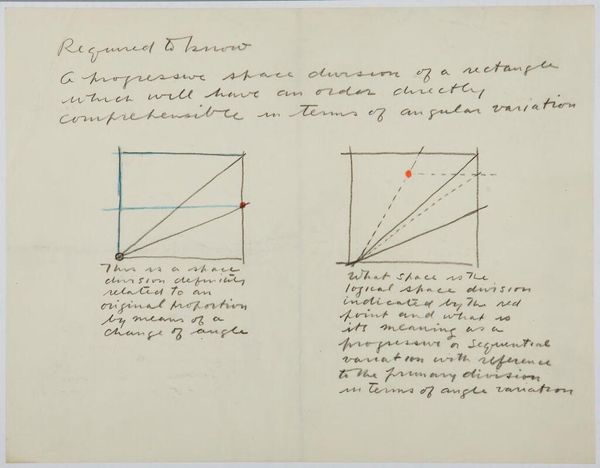 Required to know
A progressive space division of a rectangle
which will have an order directly
comprehensible in terms of angular variation
This is a space
division definitely
related to an
original proportion
by means of a
change of angle
What space is the
logical space division
indicated by the red
point and what is
its meaning as a
progressive or sequential
variation with reference
to the primary division
in terms of angle variation